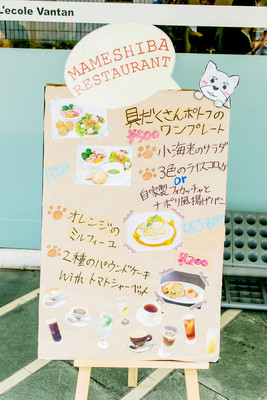 L'ecole Vantan
MAMESHIBA
RESTAURANT
具だくさんポトフの
ワンプレート
¥500
小海老のサラダ
3色のライスコロッケ
or
自家製フォカッチャと
ナポリ風揚げパン
オレンジの
ミルフィーユ
¥200
2種のパウンドケーキ
with トマトシャーベット